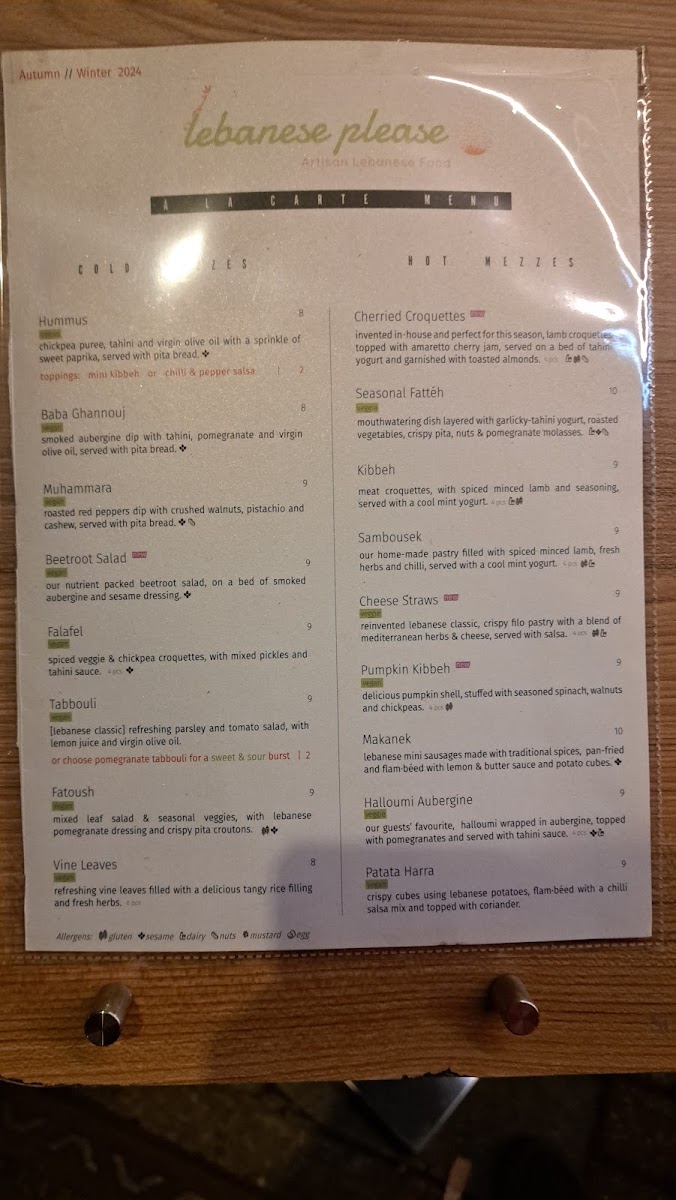 Autumn // Winter 2024
lebanese please
Artisan Lebanese Food
A LA CARTE MENU
COLD ZES
Hummus 8
vegan
chickpea puree, tahini and virgin olive oil with a sprinkle of
sweet paprika, served with pita bread.
toppings: mini kibbeh or chilli & pepper salsa | 2
Baba Ghannouj 8
vegan
smoked aubergine dip with tahini, pomegranate and virgin
olive oil, served with pita bread.
Muhammara 9
vegan
roasted red peppers dip with crushed walnuts, pistachio and
cashew, served with pita bread.
Beetroot Salad new 9
vegan
our nutrient packed beetroot salad, on a bed of smoked
aubergine and sesame dressing.
Falafel 9
vegan
spiced veggie & chickpea croquettes, with mixed pickles and
tahini sauce. 4 pcs
Tabbouli 9
vegan
[lebanese classic] refreshing parsley and tomato salad, with
lemon juice and virgin olive oil.
or choose pomegranate tabbouli for a sweet & sour burst | 2
Fatoush 9
vegan
mixed leaf salad & seasonal veggies, with lebanese
pomegranate dressing and crispy pita croutons.
Vine Leaves 8
vegan
refreshing vine leaves filled with a delicious tangy rice filling
and fresh herbs. pcs
Allergens: gluten sesame dairy nuts mustard egg
HOT MEZZES
Cherried Croquettes new
invented in-house and perfect for this season, lamb croquettes
topped with amaretto cherry jam, served on a bed of tahini
yogurt and garnished with toasted almonds. 4 pcs
Seasonal Fattéh 10
veggie
mouthwatering dish layered with garlicky-tahini yogurt, roasted
vegetables, crispy pita, nuts & pomegranate molasses.
Kibbeh 9
meat croquettes, with spiced minced lamb and seasoning,
served with a cool mint yogurt. 4 pcs
Sambousek 9
our home-made pastry filled with spiced minced lamb, fresh
herbs and chilli, served with a cool mint yogurt. 4 pcs
Cheese Straws new 9
veggie
reinvented lebanese classic, crispy filo pastry with a blend of
mediterranean herbs & cheese, served with salsa. 4 pcs
Pumpkin Kibbeh new 9
vegan
delicious pumpkin shell, stuffed with seasoned spinach, walnuts
and chickpeas. 4 pcs
Makanek 10
lebanese mini sausages made with traditional spices, pan-fried
and flam-béed with lemon & butter sauce and potato cubes.
Halloumi Aubergine 9
veggie
our guests' favourite, halloumi wrapped in aubergine, topped
with pomegranates and served with tahini sauce. 4 pcs
Patata Harra 9
vegan
crispy cubes using lebanese potatoes, flam-béed with a chilli
salsa mix and topped with coriander.